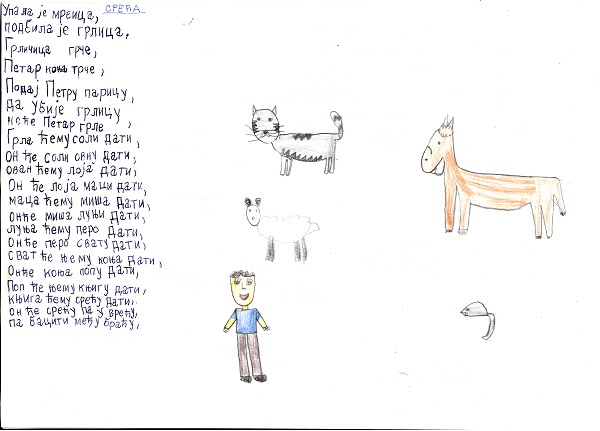 СРЕЋА
Упала је мреица,
подбила је грлица.
Грличица грче,
Петар коња трче,
Подај Петру парицу,
да убије грлицу
неће Петар грле,
Грла ћему соли дати,
Он ће соли овну дати,
ован ћему лоја дати,
Он ће лоја маци дати,
маца ћему миша дати,
онће миша луњи дати,
луња ћему перо дати,
Онће перо свату дати,
сват ће њему коња дати,
Онће коња попу дати,
Поп ће њему књигу дати,
књига ћему срећу дати.
он ће срећу па у врећу,
па бацити међу браћу,